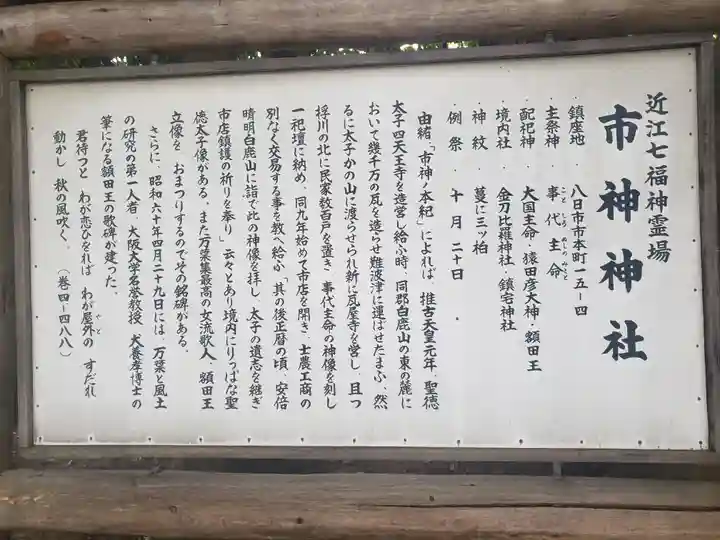 近江七福神霊場
市神神社
・鎮座地・八日市市本町一五ー四
・主祭神・事代主命
こと しろ ぬしの みこと
・配祀神・大国主命・猿田彦大神・額田王
・境内社・金刀比羅神社・鎮宅神社
・神紋・蔓に三ッ柏
・例祭・十月二十日
由緒「市神ノ本紀」によれば、推古天皇元年、聖徳
太子四天王寺を造営し給ふ時、同郡白鹿山の東の麓に
おいて幾千万の瓦を造らせ難波津に運ばせたまふ、然
るに太子かの山に渡らせられ新に瓦屋寺を営し、且つ
捋川の北に民家数百戸を置き、事代主命の神像を刻し
一祀壇に納め、同九年始めて市店を開き、士農工商の
別なく交易する事を教へ給ふ、「其の後正暦の頃、安倍
晴明白鹿山に詣で此の神像を拝し、太子の遺志を継ぎ
市店鎮護の祈りを奉り」云々とあり境内にりっぱな聖
徳太子像がある。また万葉集最高の女流歌人、額田王
立像を、おまつりするのでその銘碑がある。
さらに、昭和六十年四月二十九日には、万葉と風土
の研究の第一人者、大阪大学名誉教授、犬養孝博士の
筆になる額田王の歌碑が建った。
君待つと わが恋ひをれば わが屋外の すだれ
やど
動かし 秋の風吹く。 (巻四ー四八八)